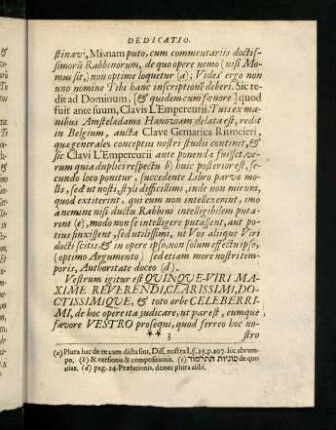 DEDICATIO.
stinavi, Misnam puto, cum commentariis doctis-
simorũ Rabbinorum, de quo opere nemo (nisi Mo-
mus sit,) non optime loquetur (a); Vides ergo non
uno nomine Tibi hanc inscriptionẽ deberi. Sic re-
dit ad Dominum, [& quidem cum fœnore] quod
fuit ante suum, Clavis L'Empereurii. Tuis ex ma-
nibus Amstelodamo Hanoviam delata est, redit
in Belgium, aucta Clave Gemarica Ritmeieri,
qua generales conceptus nostri studii continet, &
sic Clavi L'Empereurii ante ponenda fuisset, ve-
rum quia duplici respectu b) huic posterior est, se-
cundo loco ponitur, succedente Libro parvæ mo-
lis, sed ut nosti, styli difficillimi, inde non mirum,
quod extiterint, qui eum non intellexerint, imo
à nemine nisi doctu Rabbini intelligibilem puta-
rint (c), modo non se intelligere putassent, aut po-
tius finxissent, sed utilissimi, ut Vos aliique Viri
docti scitis, & in opere ipso, non solum effectu ipso,
(optimo Argumento) sed etiam more nostri tem-
poris, Authoritate doceo (d).
Vestrum igitur est QUINQUE-VIRI MA-
XIME REVERENDI, CLARISSIMI, DO-
CTISSIMIQUE, & toto orbe CELEBERRI-
MI, de hoc opere ita judicare, ut par est, eumque,
favore VESTRO prosequi, quod ferreo hoc no-
** 3 stro
(a) Plura hac de re cum dicta sint, Diss. nostra I. §. 25. p. 207. hic abrum-
po. (b) & versionis & compositionis. (c) סוגיות התלמוד de quo
alias. (d) pag. 24. Præfationis, denec plura alibi.